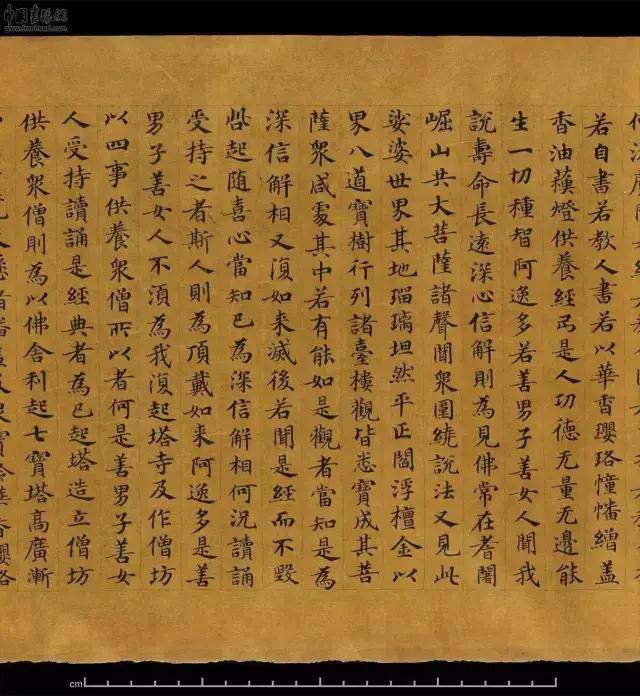 若自書若教人書若以華香瓔珞幢幡繒盖
香油蘓燈供養經卷是人功德无量无邊能
生一切種智阿逸多若善男子善女人聞我
說壽命長遠深心信解則為見佛常在耆闍
崛山共大菩薩諸聲聞衆圍繞說法又見此
娑婆世界其地瑠璃坦然平正閻浮檀金以
界八道寶樹行列諸臺樓觀皆悉寶成其菩
薩衆咸處其中若有能如是觀者當知是為
深信解相又復如来滅後若聞是經而不毀
呰起随喜心當知已為深信解相何況讀誦
受持之者斯人則為頂戴如来阿逸多是善
男子善女人不湏為我復起塔寺及作僧坊
以四事供養衆僧所以者何是善男子善女
人受持讀誦是經典者為已起塔造立僧坊
供養衆僧則為以佛舍利起七寶塔高廣漸
cm